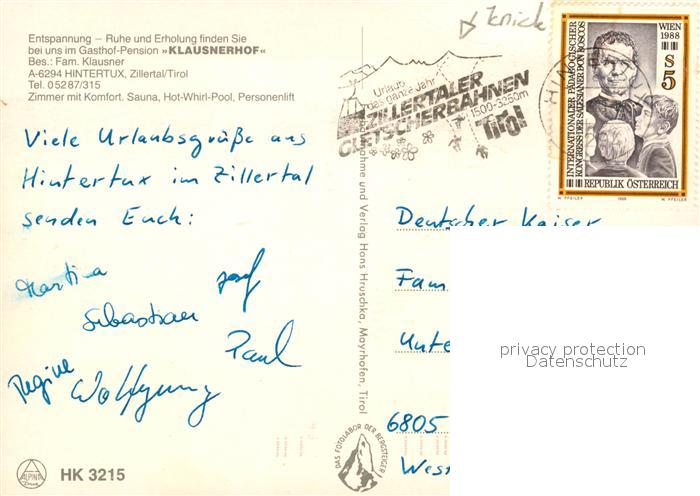 Entspannung – Ruhe und Erholung finden Sie
bei uns im Gasthof-Pension »KLAUSNERHOF«
Bes.: Fam. Klausner
A-6294 HINTERTUX, Zillertal/Tirol
Tel. 05287/315
Zimmer mit Komfort. Sauna, Hot-Whirl-Pool, Personenlift
Viele Urlaubsgrüße aus
Hintertux im Zillertal
senden Euch:
Martina Josef
Sebastian
Paul
Regine Wolfgang
ALPINA
DRUCK
HK 3215
Knick
Urlaub
das ganze Jahr
ZILLERTALER
GLETSCHERBAHNEN
1500-3250m
Tirol
WIEN
1988
S
5
INTERNATIONALER PÄDAGOGISCHER
KONGRESS DER SALESIANER DON BOSCOS
REPUBLIK ÖSTERREICH
W. PFEILER 1988 W. PFEILER
Aufnahme und Verlag Hans Hruschka, Mayrhofen, Tirol
DAS FOTOLABOR DER BERGSTEIGER
Deutscher Kaiser
Fam
Unte
6805
West
privacy protection
Datenschutz